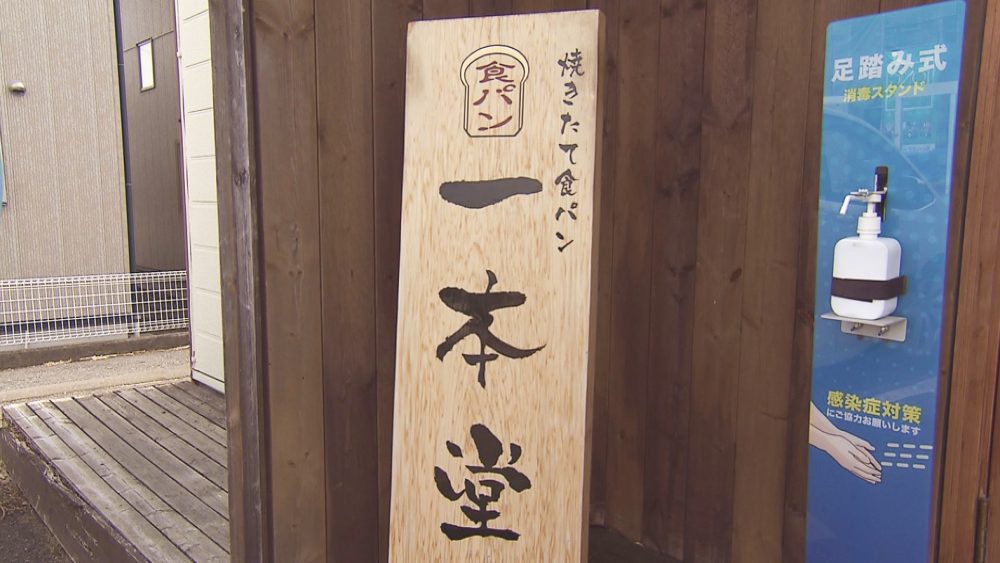 焼きたて食パン
食パン
一本堂
足踏み式
消毒スタンド
感染症対策
にご協力お願いします